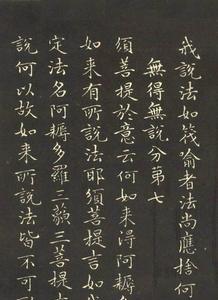 我說法如筏喻者法尚應捨何
無得無說分第七
須菩提於意云何如來得阿耨
如来有所說法耶須菩提言如
定法名阿耨多羅三藐三菩提
說何以故如来所說法皆不可